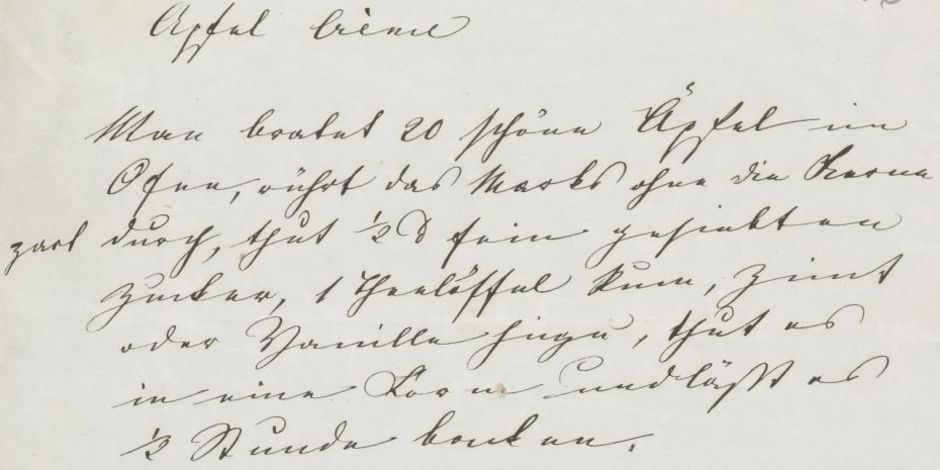 Apfel Crême
Man bratet 20 schöne Äpfel im
Ofen, rührt das Marks ohne die Kerne
zart durch, thut ½ ℔ fein gesiebten
Zucker, 1 Theelöffel Rum, Zimt
oder Vanille hinzu, thut es
in eine Form und läßt es
½ Stunde backen.